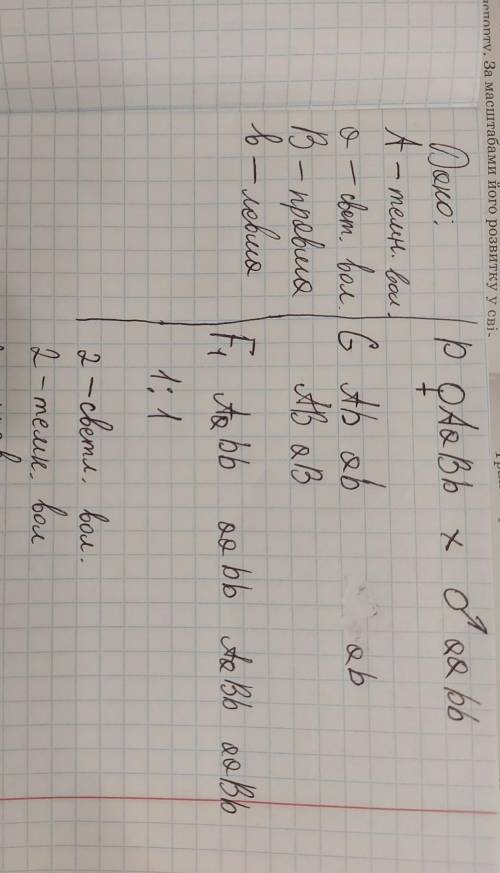 спорту. За масштабами його розвитку у сві-
Дано:
А – темн. вол.
а – свет. вол.
В – правша
в – левша
P ♀ AaBb × ♂ aabb
G Ab ab ab
AB aB
F₁ Aabb aabb AaBb aaBb
1:1
2 – светл. вол.
2 – темн. вол